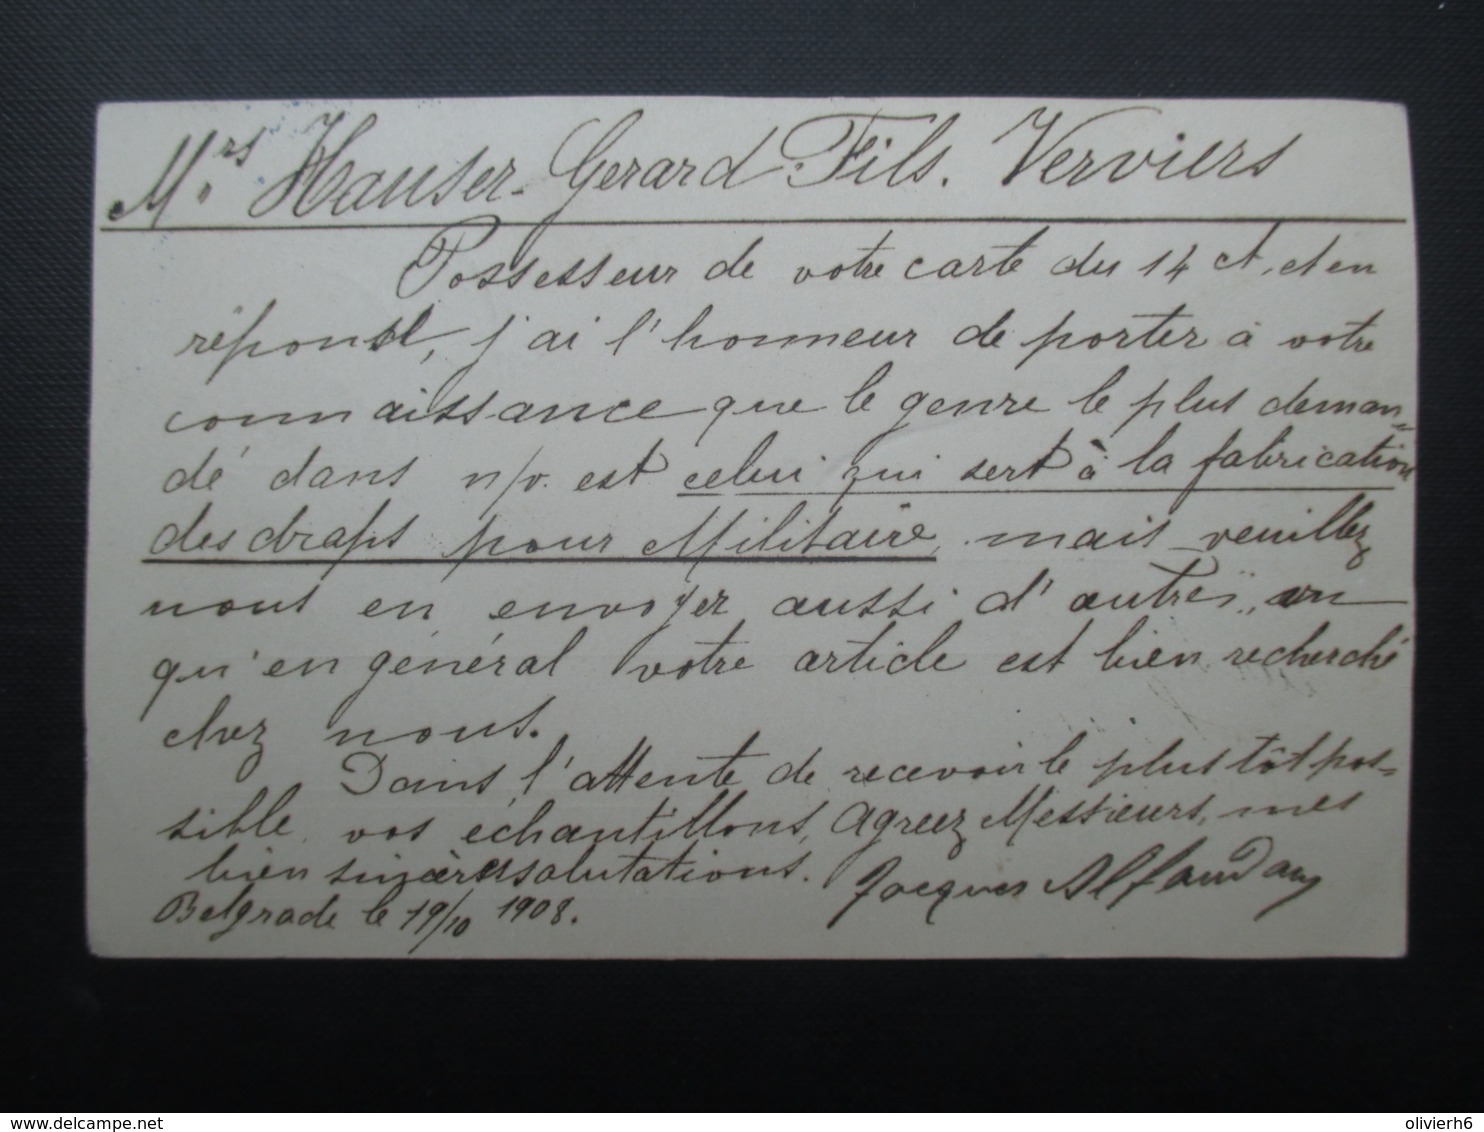 Mrs Hauser-Gerard Fils. Verviers
Possesseur de votre carte du 14 ct, et en
réponse, j'ai l'honneur de porter à votre
connaissance que le genre le plus deman=
dé dans n/v. est celui qui sert à la fabrication
des draps pour Militaire, mais veuillez
nous en envoyer aussi d'autres, vu
qu'en général votre article est bien recherché
chez nous.
Dans l'attente de recevoir le plus tôt pos=
sible vos echantillons, Agreez Messieurs, mes
bien sincères salutations. Jacques Alfandary
Belgrade le 19/10 1908.
delcampe.net
olivierh6